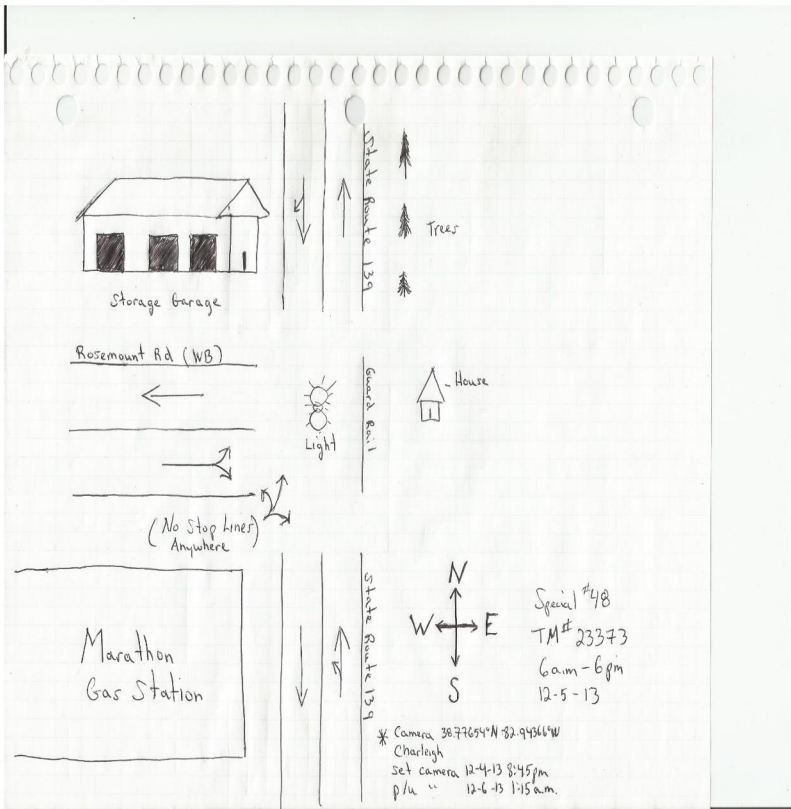 State Route 139
Trees
Storage Garage
Rosemount Rd (WB)
Guard Rail
House
Light
(No Stop Lines)
Anywhere
State Route 139
N
W E
S
Marathon
Gas Station
Special #48
TM# 23373
6am-6pm
12-5-13
* Camera 38.77654°N -82.94366°W
Charleigh
set camera 12-4-13 8:45pm
p/u " 12-6-13 1:15a.m.